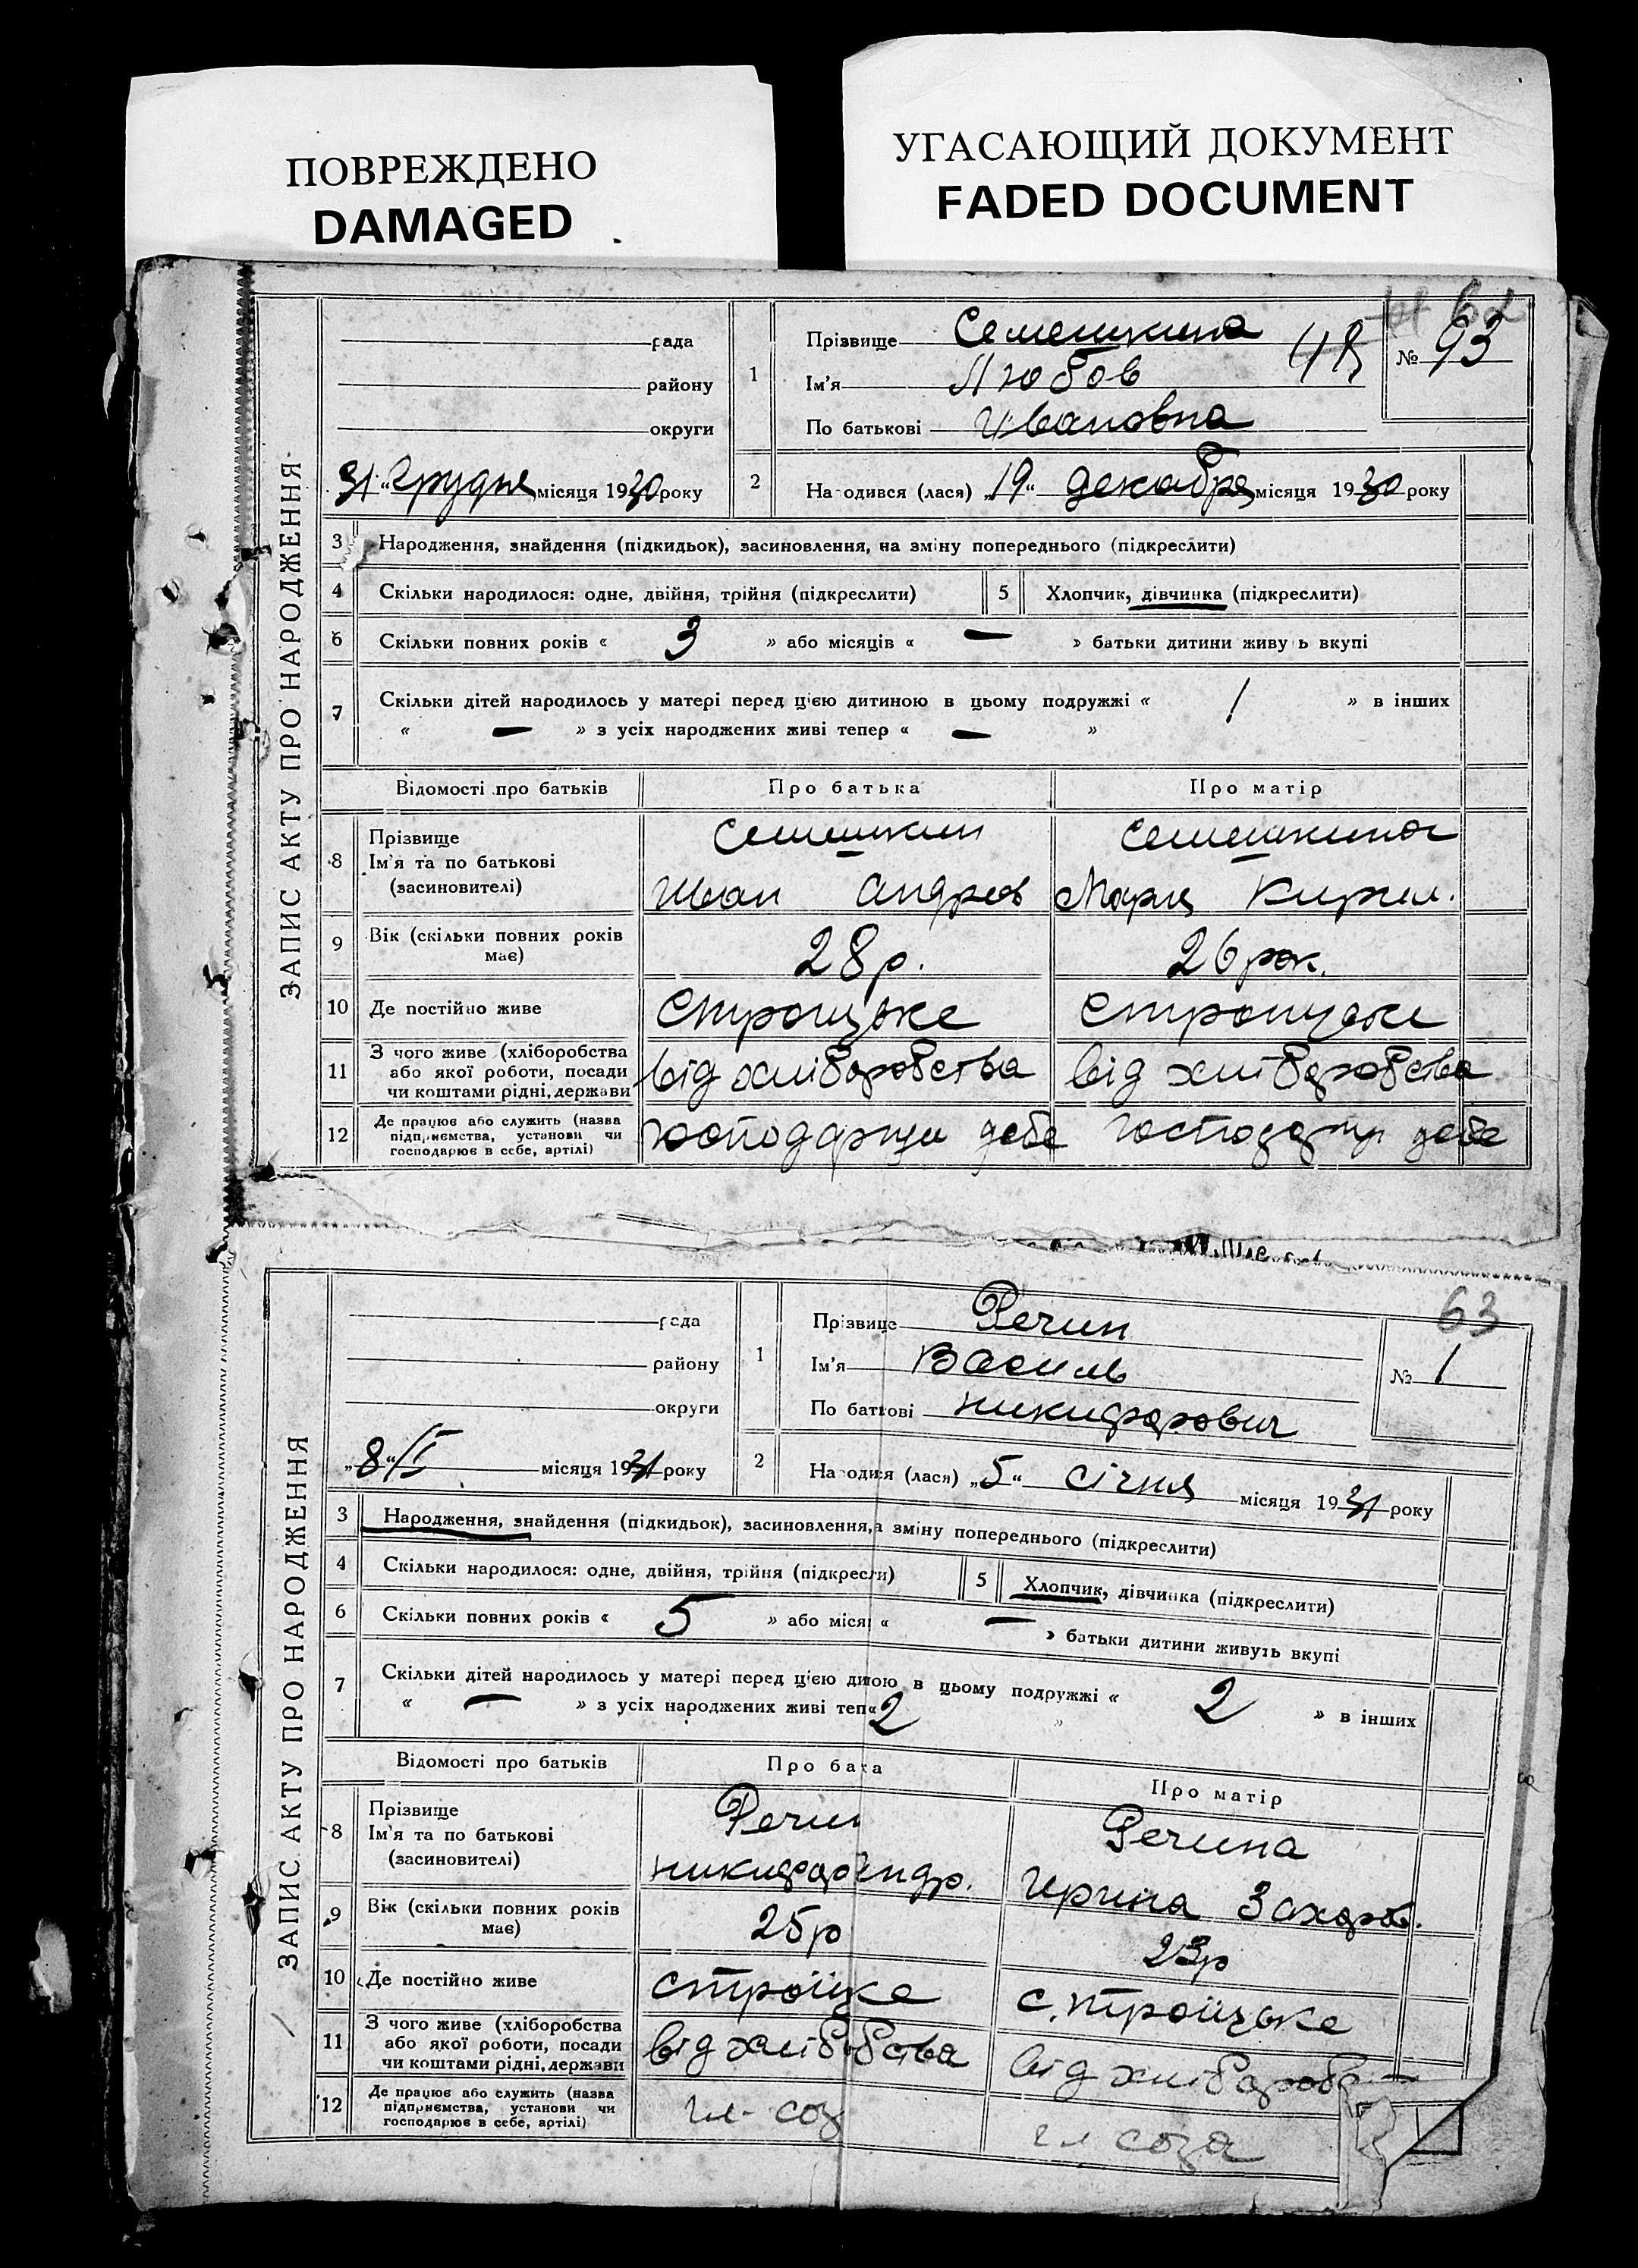 ПОВРЕЖДЕНО
DAMAGED
УГАСАЮЩИЙ ДОКУМЕНТ
FADED DOCUMENT
ЗАПИС АКТУ ПРО НАРОДЖЕННЯ
рада
району
округи
31 " Грудня місяця 1930 року
1
Прізвище Семешкина
Ім'я Любов
По батькові Ивановна
48
№ 93
2 Народився (лася) „19" декабря місяця 1930 року
3 Народження, знайдення (підкидьок), засиновлення, на зміну попереднього (підкреслити)
4 Скільки народилося: одне, двійня, трійня (підкреслити) 5 Хлопчик, дівчинка (підкреслити)
6 Скільки повних років « 3 » або місяців « — » батьки дитини живу ь вкупі
7 Скільки дітей народилось у матері перед цією дитиною в цьому подружжі « 1 » в інших
« — » з усіх народжених живі тепер « — »
Відомості про батьків Про батька Про матір
8 Прізвище
Ім'я та по батькові
(засиновителі)
Семешкин
Иван Андреев
Семешкина
Мария Кирил.
9 Вік (скільки повних років
має)
28р. 26 рок.
10 Де постійно живе Строицьке Строицьке
11 З чого живе (хліборобства
або якої роботи, посади
чи коштами рідні, держави
від хліборобства від хліборобства
12 Де працює або служить (назва
підприємства, установи чи
господарює в себе, артілі)
ЗАПИС АКТУ ПРО НАРОДЖЕННЯ
рада
району
округи
„8"/I місяця 1931 року
1
Прізвище Речин
Ім'я Василь
По баткові Никифорович
63
№ 1
2 Народися (лася) „5" січня місяця 1931 року
3 Народження, знайдення (підкидьок), засиновлення,а зміну попереднього (підкреслити)
4 Скільки народилося: одне, двійня, трійня (підкресли) 5 Хлопчик, дівчинка (підкреслити)
6 Скільки повних років « 5 » або місяц « — » батьки дитини живуть вкупі
7 Скільки дітей народилось у матері перед цією диною в цьому подружжі « 2 » в інших
« — » з усіх народжених живі теп« 2 »
Відомості про батьків Про бака Про матір
8 Прізвище
Ім'я та по батькові
(засиновителі)
Речин
Никифор Андр.
Речина
Ирина Захаров.
9 Вік (скільки повних років
має)
25р 23р
10 Де постійно живе Строїцке с. Троїцьке
11 З чого живе (хліборобства
або якої роботи, посади
чи коштами рідні, держави
від хлібобства від хлібороб
12 Де працює або служить (назва
підприємства, установи чи
господарює в себе, артілі)
чл. соз
чл соза